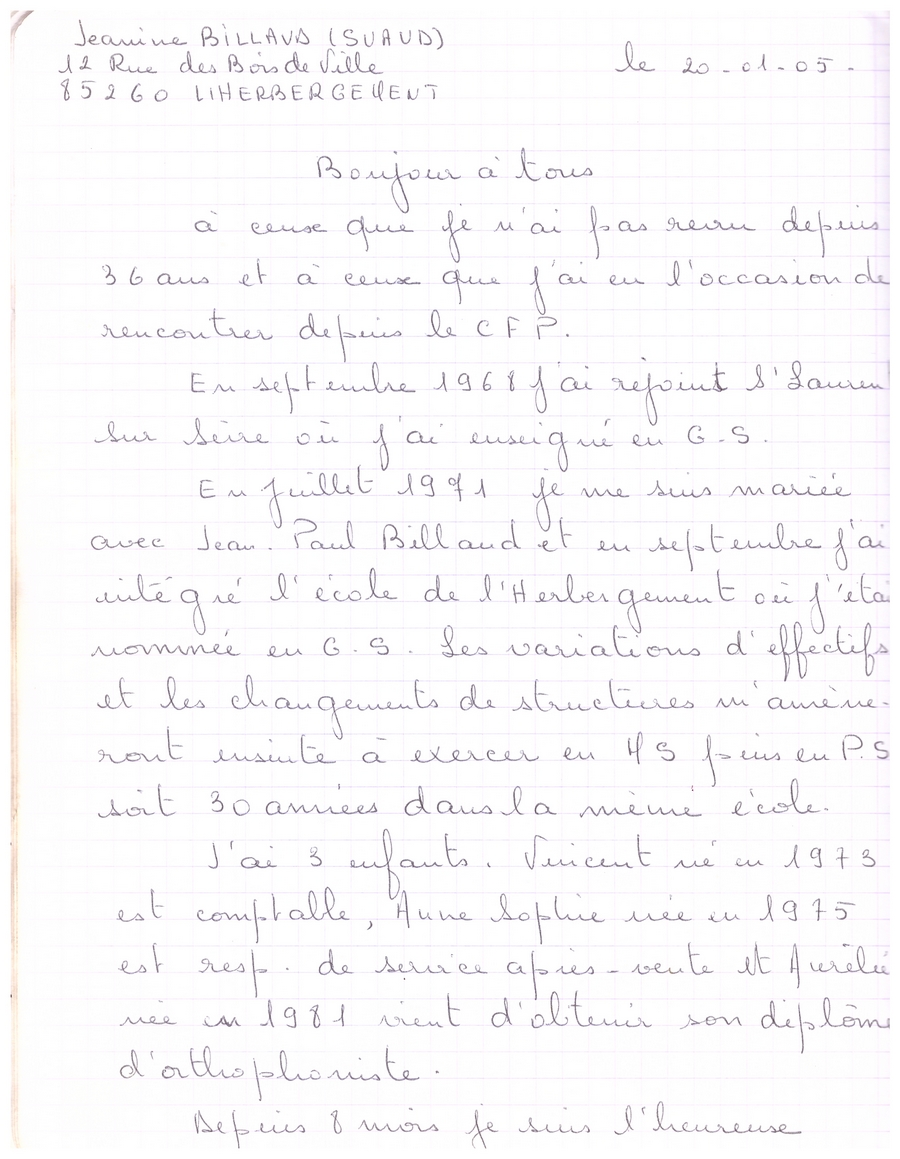 Jeanine BILLAUD (SUAUD)
12 Rue des Bois de Ville
le 20-01-05.
85260 L'HERBERGEMENT
Bonjour à tous
à ceux que je n'ai pas revu depuis
36 ans et à ceux que j'ai eu l'occasion de
rencontrer depuis le CFP.
En septembre 1968 j'ai rejoint St Lauren
sur Sèvre où j'ai enseigné en G.S.
En juillet 1971 je me suis mariée
avec Jean-Paul Billaud et en septembre j'ai
intégré l'école de l'Herbergement où j'étai
nommée en G.S. Les variations d'effectifs
et les changements de structures m'amène-
ront ensuite à exercer en MS puis en P.S
soit 30 années dans la même école.
J'ai 3 enfants. Vincent né en 1973
est comptable, Anne Sophie née en 1975
est resp. de service après-vente et Aurélie
née en 1981 vient d'obtenir son diplôme
d'orthophoniste.
Depuis 8 mois je suis l'heureuse